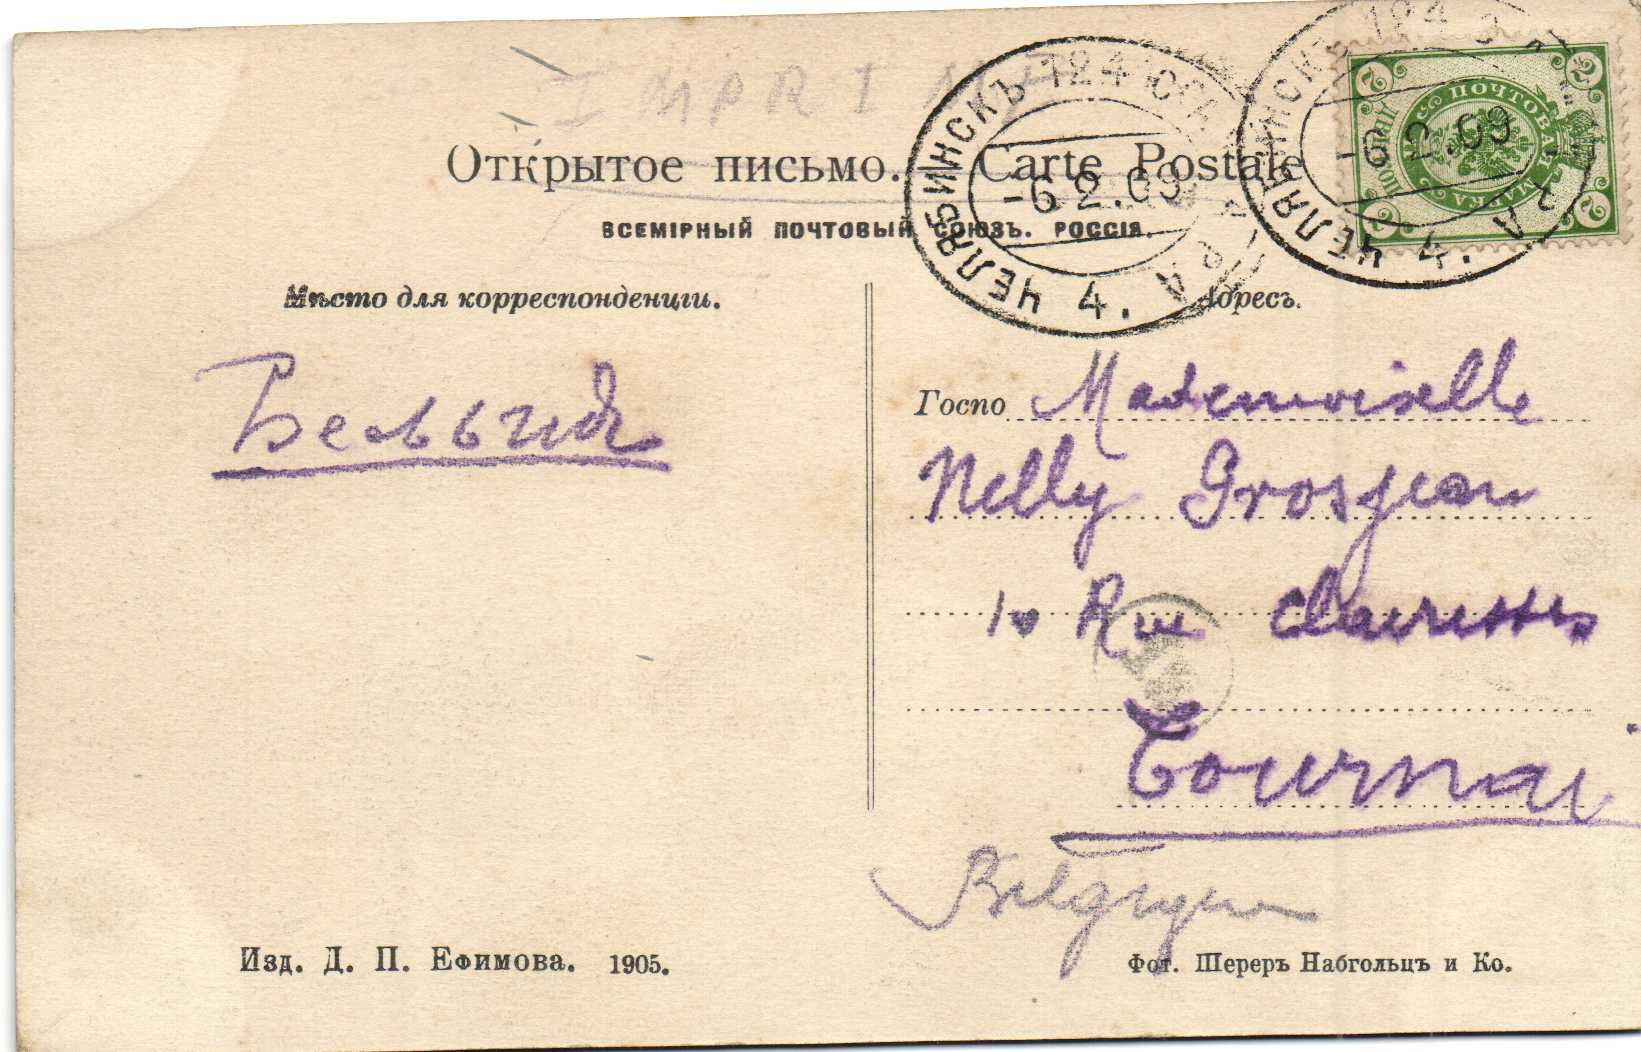 IMPRIMÉ
Открытое письмо. Carte Postale
ВСЕМІРНЫЙ ПОЧТОВЫЙ СОЮЗЪ. РОССІЯ.
ЧЕЛЯБИНСКЪ 124
-6.2.09
4.
ЧЕЛЯБИНСКЪ 124
-6.2.09
4.
2 2
ПОЧТОВ МАРКА
2 2
Мѣсто для корреспонденціи.
Адресъ.
Бельгия
Госпо Mademoiselle
Nelly Grosjean
Rue
Tournai
Belgique
Изд. Д. П. Ефимова. 1905.
Фот. Шереръ Набгольцъ и Ко.